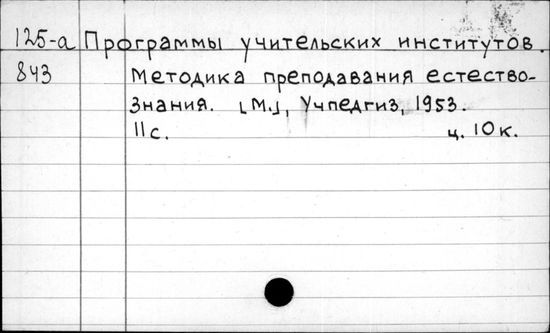 125-а Программы учительских институтов.
843 Методика преподавания естество-
знания. [М.], Учпедгиз, 1953.
11с. ц. 10к.